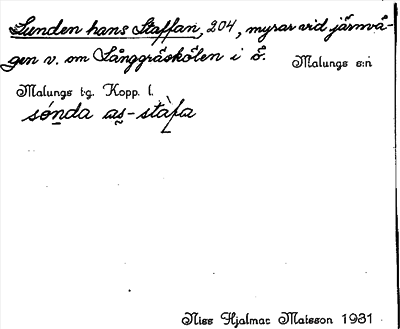 Lunden hans Staffan, 204, myrar vid järnvä-
gen v. om Långgråskölen i ö.
Malungs s:n
Malungs t.g. Kopp. l.
sónda as-stàfa
Niss Hjalmar Matsson 1931